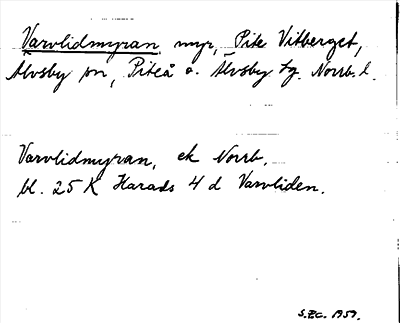 Varvlidmyran, myr, Pite Vitberget,
Älvsby sn, Piteå o. Älvsby tg. Norrb. l.
Varvlidmyran, ek Norrb.
bl. 25 K Harads 4 d Varvliden.
S.E.C. 1959.